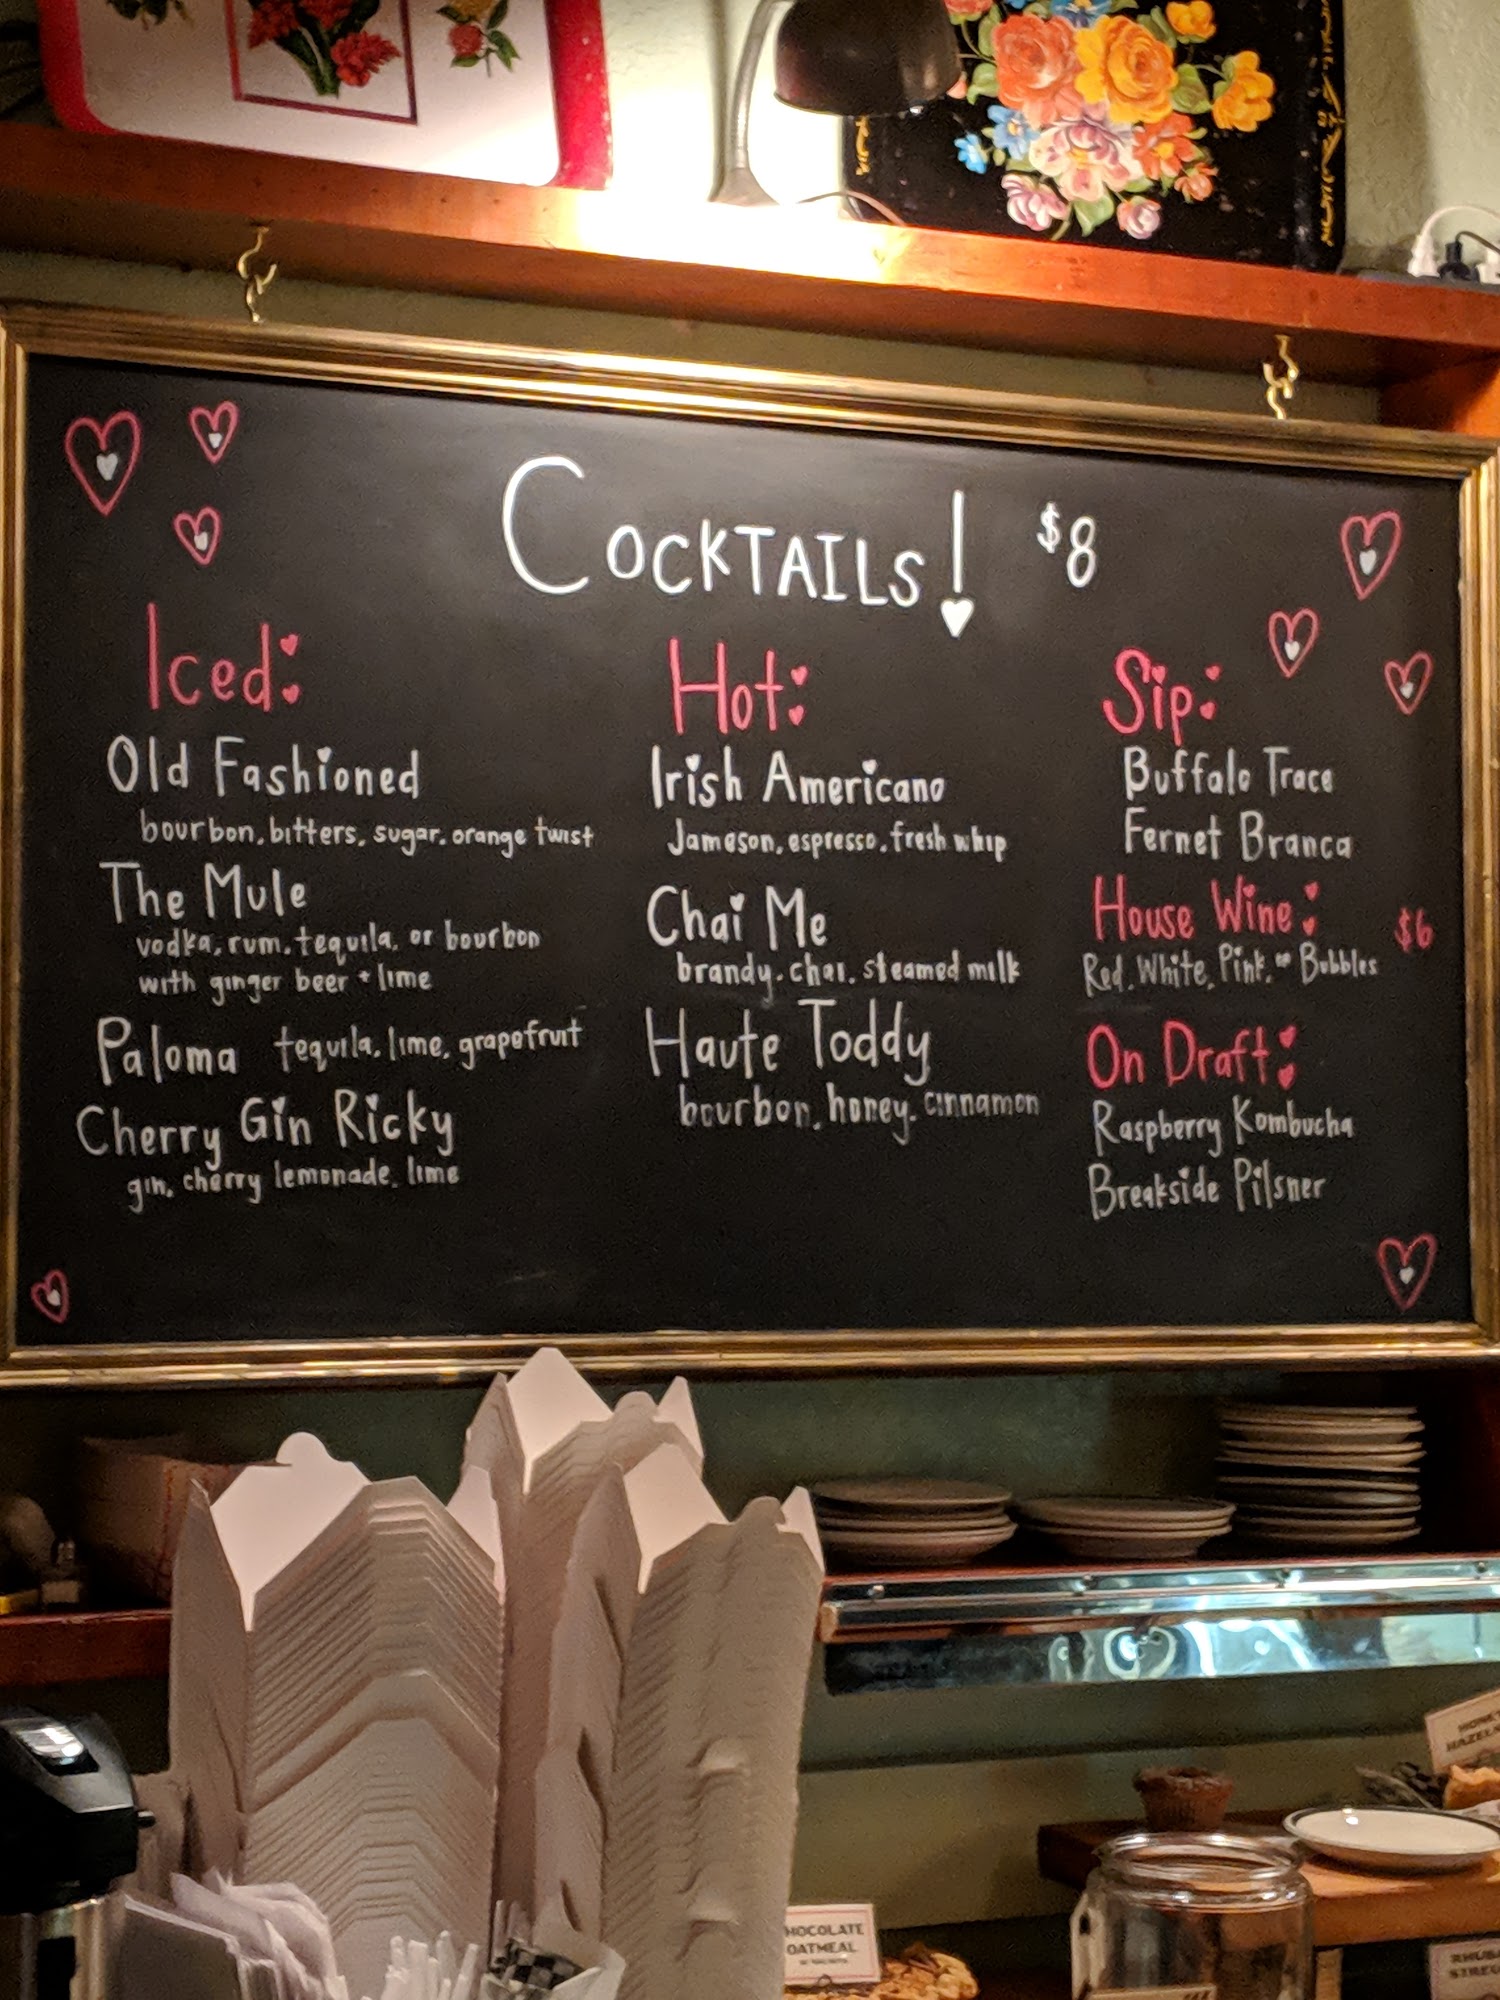 COCKTAILS! $8
Iced:
Old Fashioned
bourbon, bitters, sugar, orange twist
The Mule
vodka, rum, tequila, or bourbon
with ginger beer + lime
Paloma tequila, lime, grapefruit
Cherry Gin Ricky
gin, cherry lemonade, lime
Hot:
Irish Americano
Jameson, espresso, fresh whip
Chai Me
brandy, chai, steamed milk
Haute Toddy
bourbon, honey, cinnamon
Sip:
Buffalo Trace
Fernet Branca
House Wine: $6
Red, White, Pink, or Bubbles
On Draft:
Raspberry Kombucha
Breakside Pilsner
HOCOLATE
OATMEAL